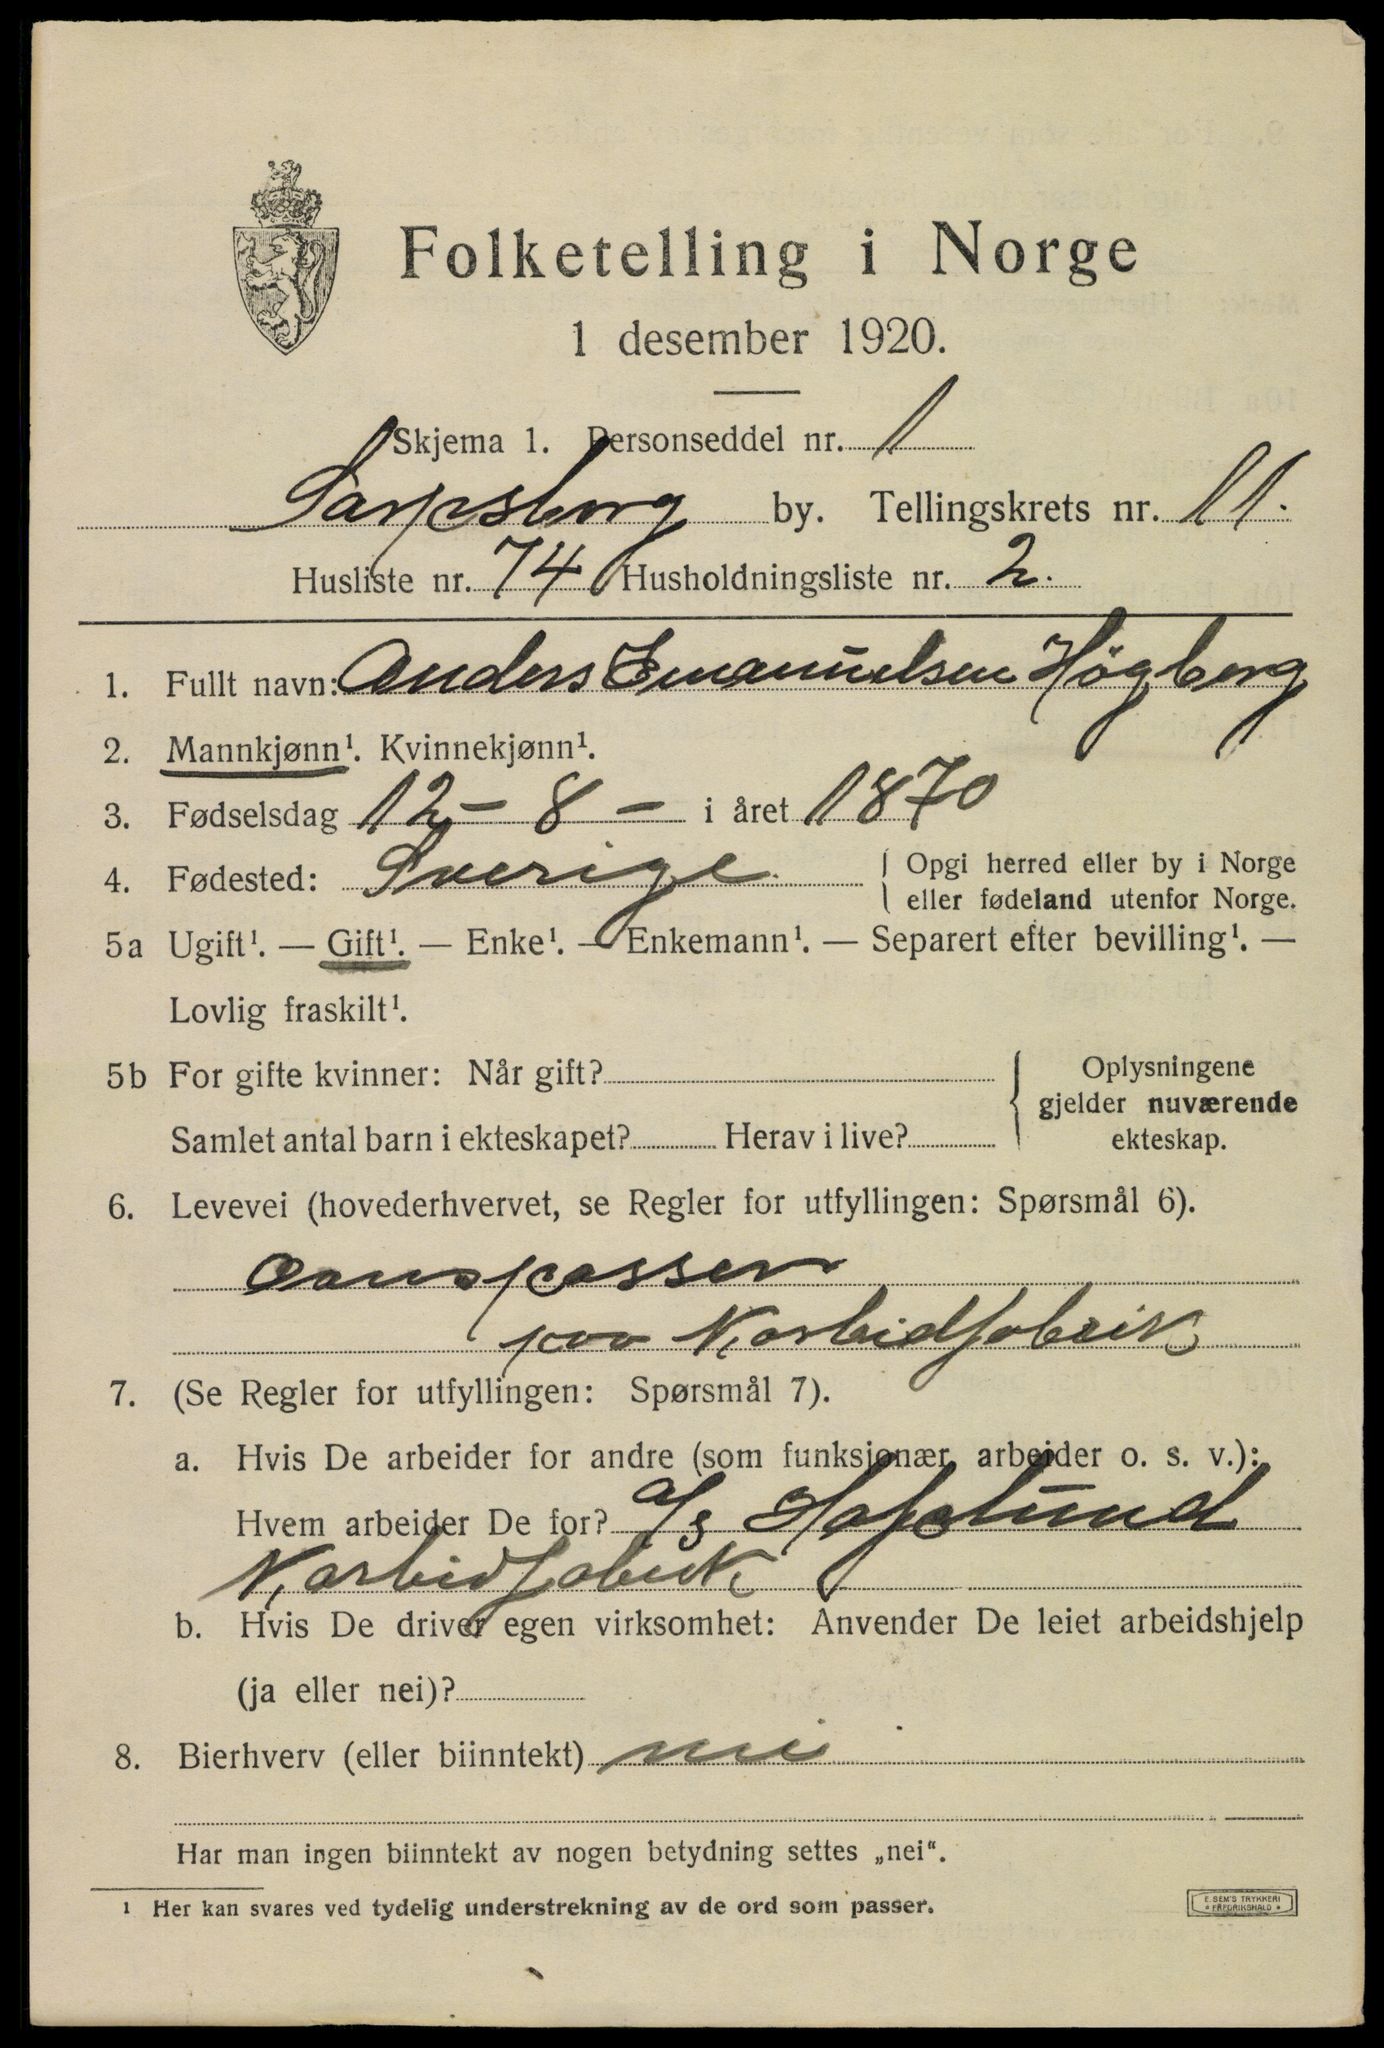 Folketelling i Norge
1 desember 1920.
Skjema 1. Personseddel nr. 1
Sarpsborg by. Tellingskrets nr. 11.
Husliste nr. 74 Husholdningsliste nr. 2.
1. Fullt navn: Anders Emanuelsen Högberg
2. Mannkjønn¹. Kvinnekjønn¹.
3. Fødselsdag 12 – 8 – i året 1870
4. Fødested: Sverige. { Opgi herred eller by i Norge
eller fødeland utenfor Norge.
5a Ugift¹. — Gift¹. — Enke¹. — Enkemann¹. — Separert efter bevilling¹. —
Lovlig fraskilt¹.
5b For gifte kvinner: Når gift? { Oplysningene
gjelder nuværende
Samlet antal barn i ekteskapet? Herav i live? ekteskap.
6. Levevei (hovederhvervet, se Regler for utfyllingen: Spørsmål 6).
Ovnspasser
paa Karbidfabrik
7. (Se Regler for utfyllingen: Spørsmål 7).
a. Hvis De arbeider for andre (som funksjonær, arbeider o. s. v.):
Hvem arbeider De for? A/S Hafslund
Karbidfabrik
b. Hvis De driver egen virksomhet: Anvender De leiet arbeidshjelp
(ja eller nei)?
8. Bierhverv (eller biinntekt) nei
Har man ingen biinntekt av nogen betydning settes „nei“.
¹ Her kan svares ved tydelig understrekning av de ord som passer.
E. SEM'S TRYKKERI
* FREDRIKSHALD *